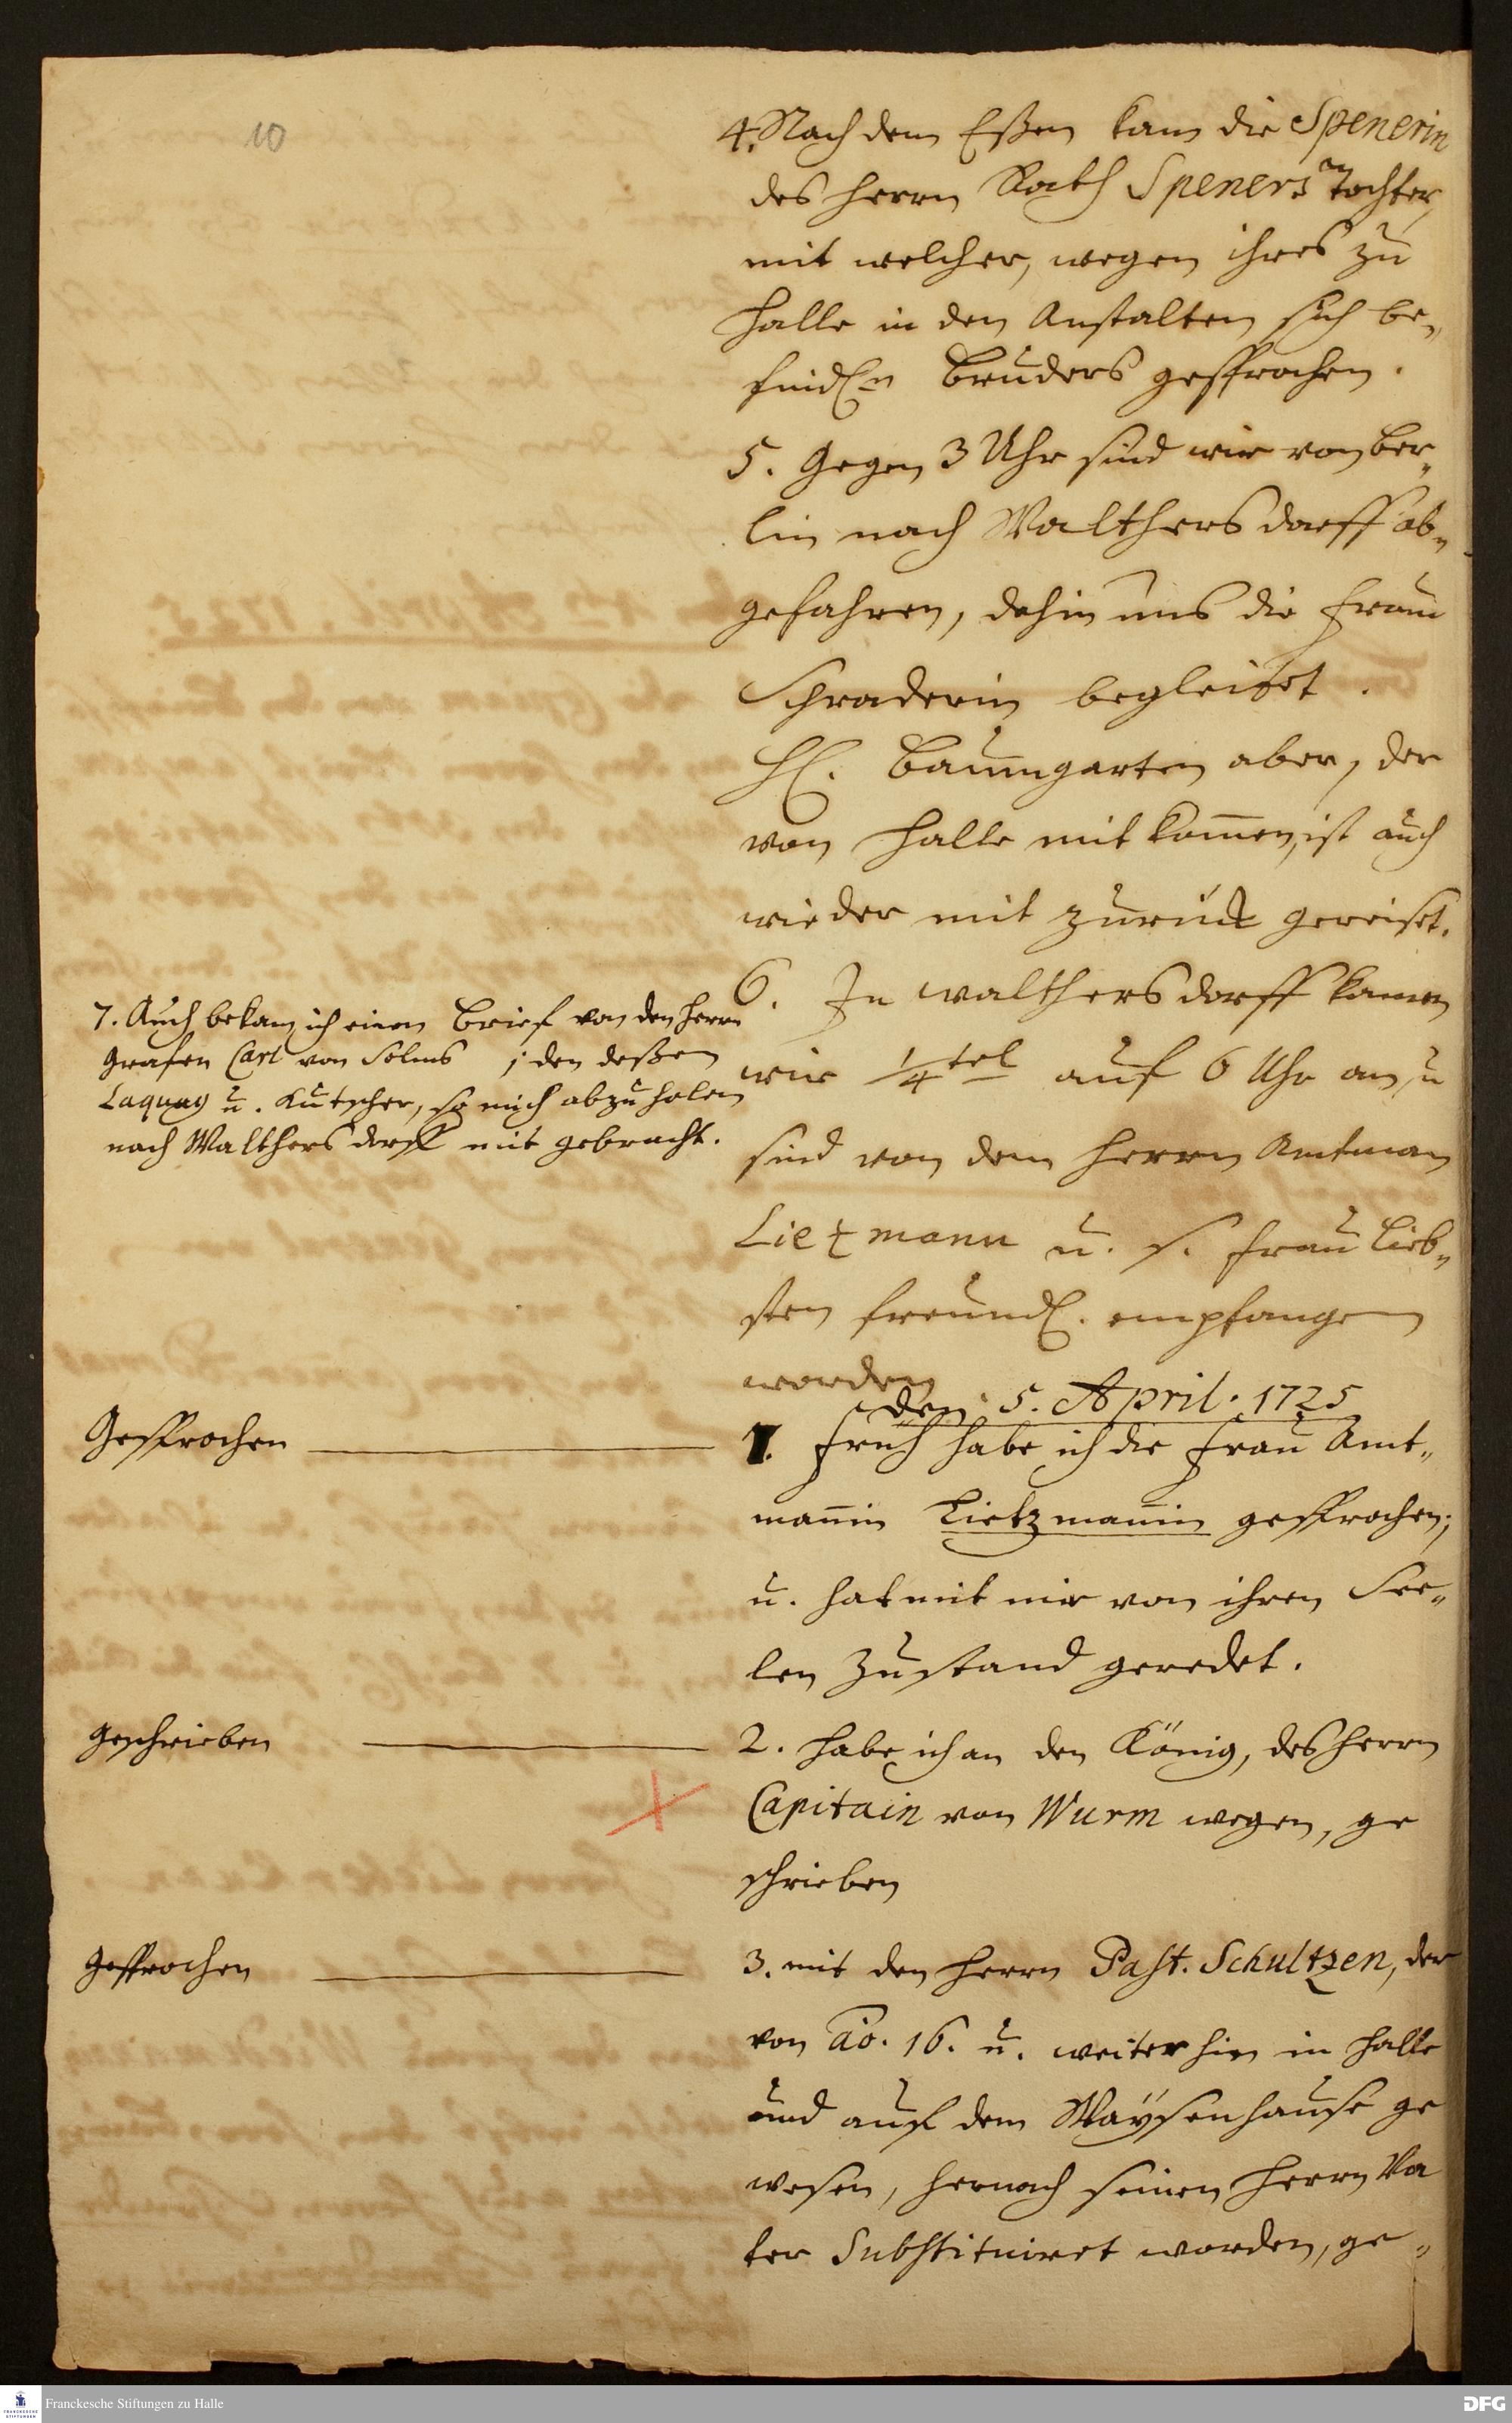 10
4. Nach dem Eßen kam die Spenerin
des Herrn Rath Speners Tochter,
mit welcher, wegen ihres zu
Halle in den Anstalten sich be„
findl. Bruders gesprochen.
5. Gegen 3 Uhr sind wir von Ber„
lin nach Walthersdorff ab„
gefahren, dahin uns die Frau
Schraderin begleitet.
H. Baumgarten aber, der
von Halle mit kom̄en, ist auch
wieder mit zurück gereiset.
6. In Walthersdorff kamen
wir 1/4tel auf 6 Uhr an, u
sind von dem Herrn Amtman
Lietzmann u. s. Frau Lieb„
sten freundl. empfangen
worden
7. Auch bekam ich einen Brief von den Herrn
Grafen Carl von Solms ; den deßen
Laquay u. Kutscher, so mich abzuholen
nach Walthersdorff mit gebracht.
den 5. April. 1725
Gesprochen
1. Früh habe ich die Frau Amt„
man̄in Lietzman̄in gesprochen;
u. hat mit mir von ihren See„
len Zustand geredet.
Geschrieben
2. habe ich an den König, des Herrn
Capitain von Wurm wegen, ge
schrieben
Gesprochen
3. mit den Herrn Past. Schultzen, der
von ao. 16. u. weiter hin in Halle
und auf dem Waysenhause ge
wesen, hernach seinen Herrn Va
ter Substituiret worden, ge„
Franckesche Stiftungen zu Halle
FRANCKESCHE STIFTUNGEN
DFG